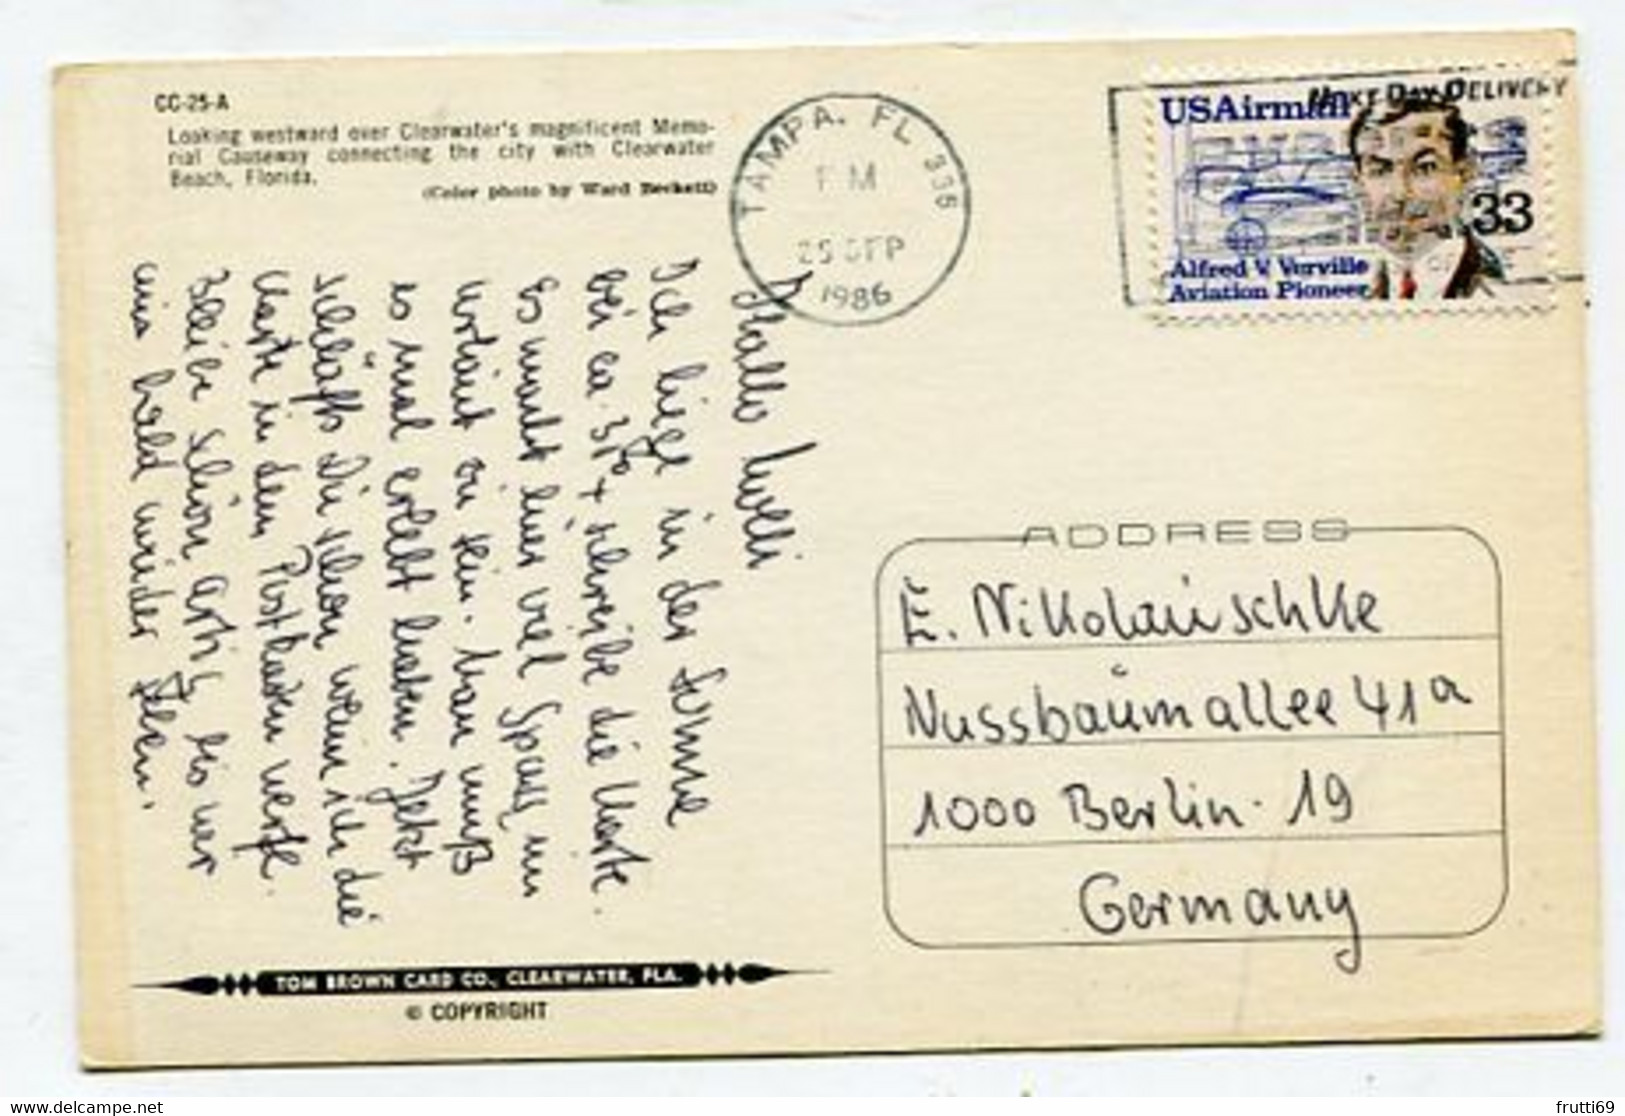 CC-25-A
Looking westward over Clearwater's magnificent Memo-
rial Causeway connecting the city with Clearwater
Beach, Florida.
(Color photo by Ward Beckett)
TAMPA. FL 335
PM
25 SEP
1986
DELIVERY
USAirmail
33
Alfred V. Verville
Aviation Pioneer
Hallo
Ich liege in der Sonne
bei ca 31° + schreibe die Karte.
Es macht hier viel Spass um
zu sein. Man muß
es mal erlebt haben. Jetzt
schläfst Du schon wenn ich die
Karte in den Postkasten werfe.
Bleibe schön artig, bis wir
uns bald wieder sehen.
ADDRESS
E. Nikolauschke
Nussbaumallee 41a
1000 Berlin · 19
Germany
TOM BROWN CARD CO., CLEARWATER, FLA.
© COPYRIGHT
frutti69